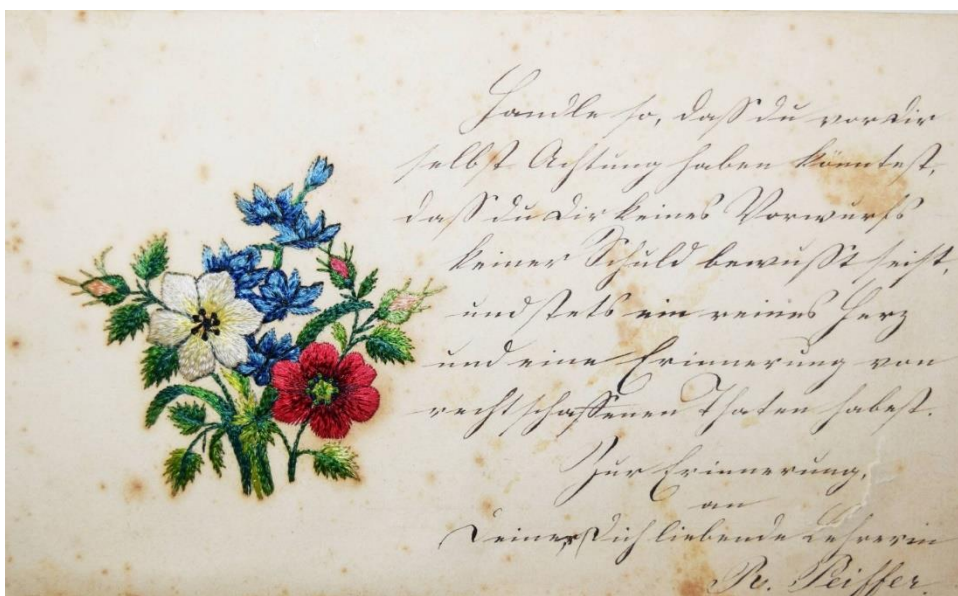 Handle so, daß du vor dir
selbst Achtung haben könntest,
daß du dir keines Vorwurfs
keiner Schuld bewußt seist,
und stets ein reines Herz
und eine Erinnerung von
rechtschaffenen Thaten habest.
Zur Erinnerung,
an
Deine, Dich liebende Lehrerin
R. Peiffer.